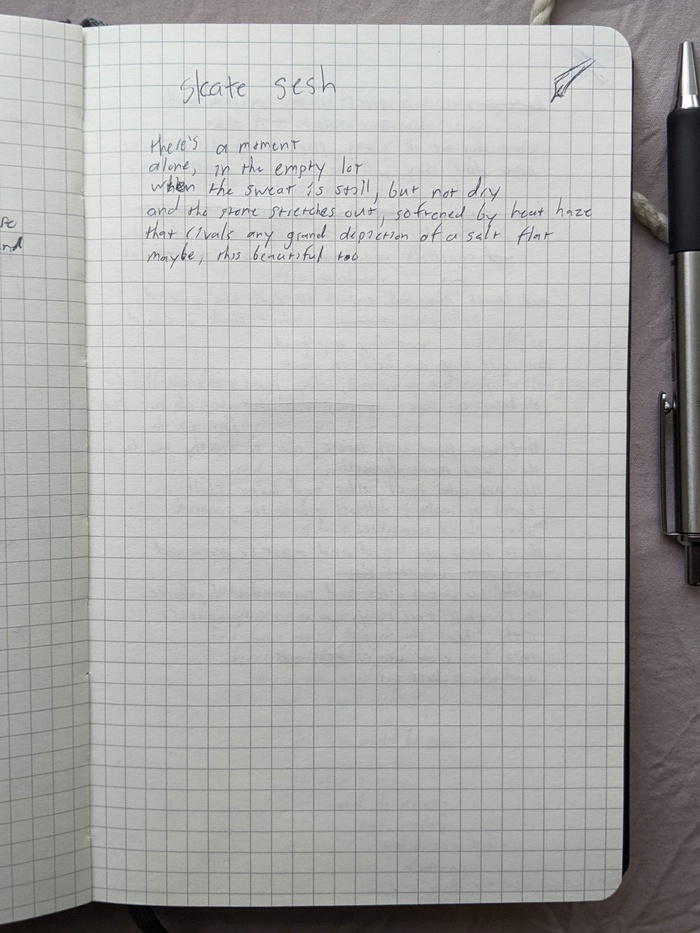 skate sesh
there's a moment
alone, in the empty lot
when the sweat is still, but not dry
and the stone stretches out, softened by heat haze
that rivals any grand depiction of a salt flat
maybe, this beautiful too
se
nd